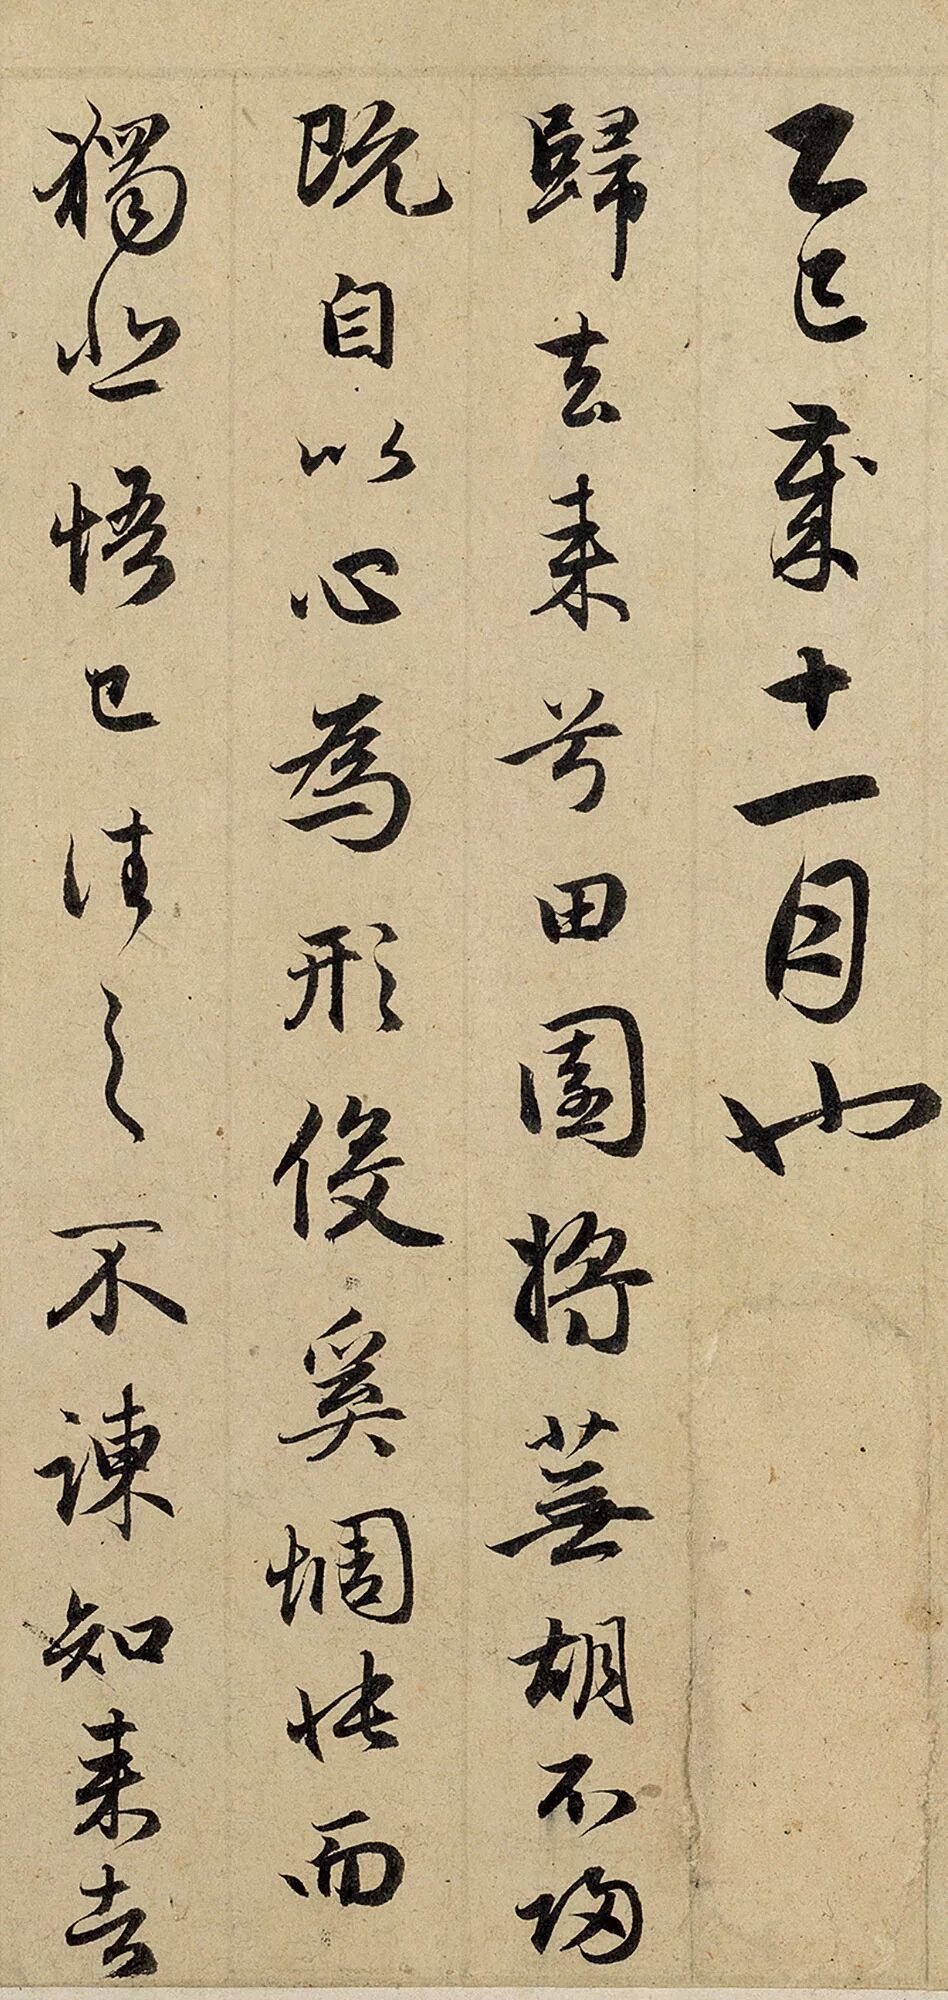 乙巳歲十一月也
歸去来兮田園將蕪胡不歸
既自以心為形伇奚惆悵而
獨悲悟已往之不諫知来者